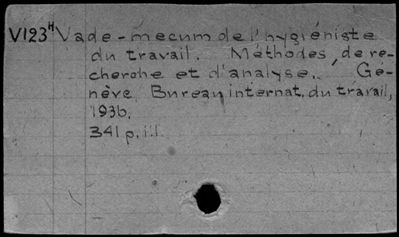 V123H Vade-mecum de l'hygiéniste
du travail. Méthodes de re-
cherche et d'analyse. Gé-
nève, Bureau internat. du travail,
1936.
341 p. ill.